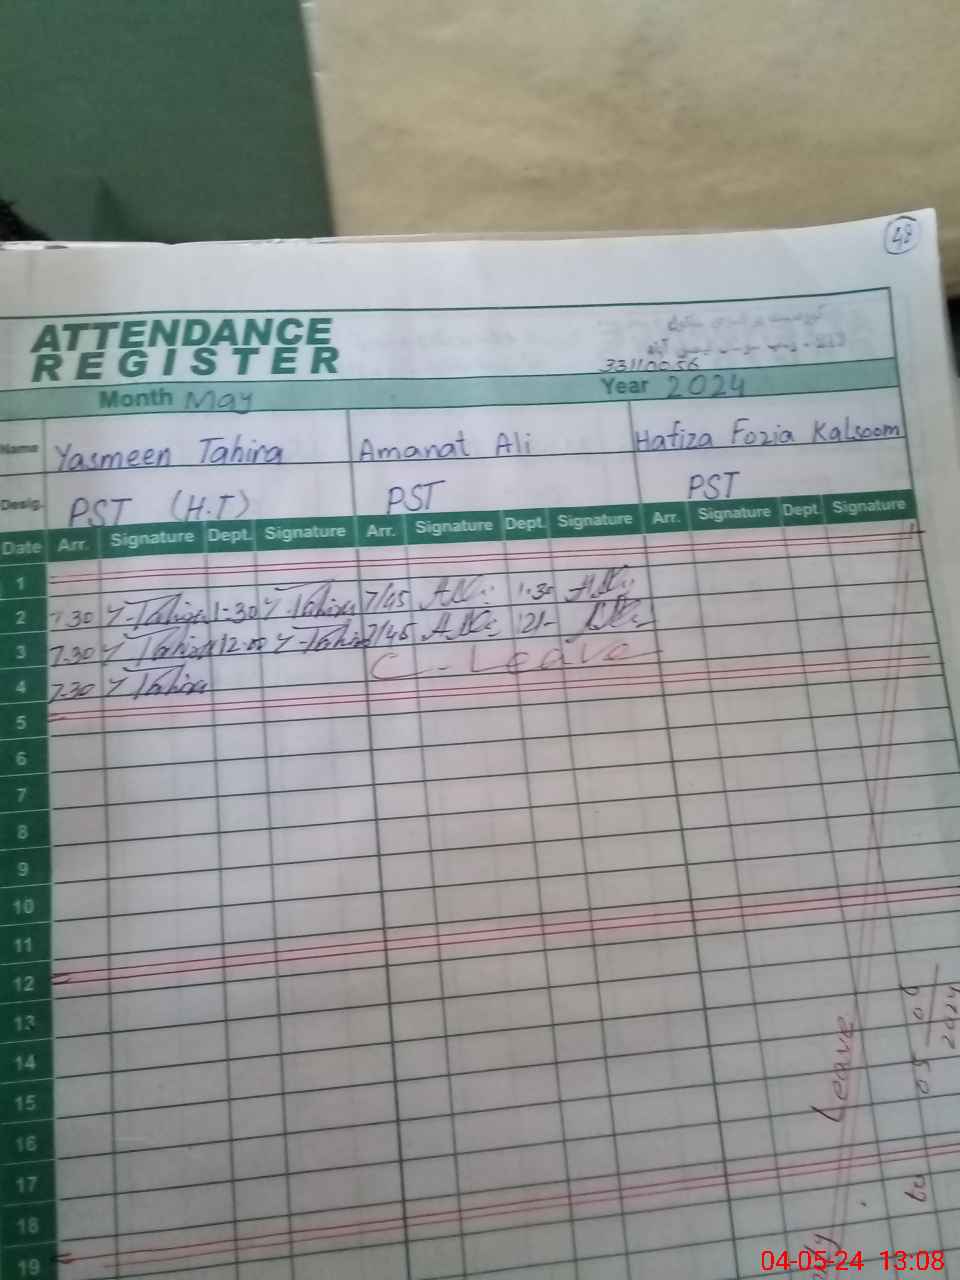 48
ATTENDANCE
REGISTER
33110056
Month May Year 2024
Name Yasmeen Tahira Amanat Ali Hafiza Fozia Kalsoom
Desig. PST (H.T) PST PST
Date Arr. Signature Dept. Signature Arr. Signature Dept. Signature Arr. Signature Dept. Signature
1
2 7.30 Y-Tahira 1-30 Y-Tahira 7/45 1.30
3 7.30 Y Tahira 12.00 Y-Tahira 7/45 12/-
4 7.30 Y Tahira C-Leave
5
6
7
8
9
10
11
12
13
14
15
16
17
18
19
Leave
to 05
2024
04-05-24 13:08